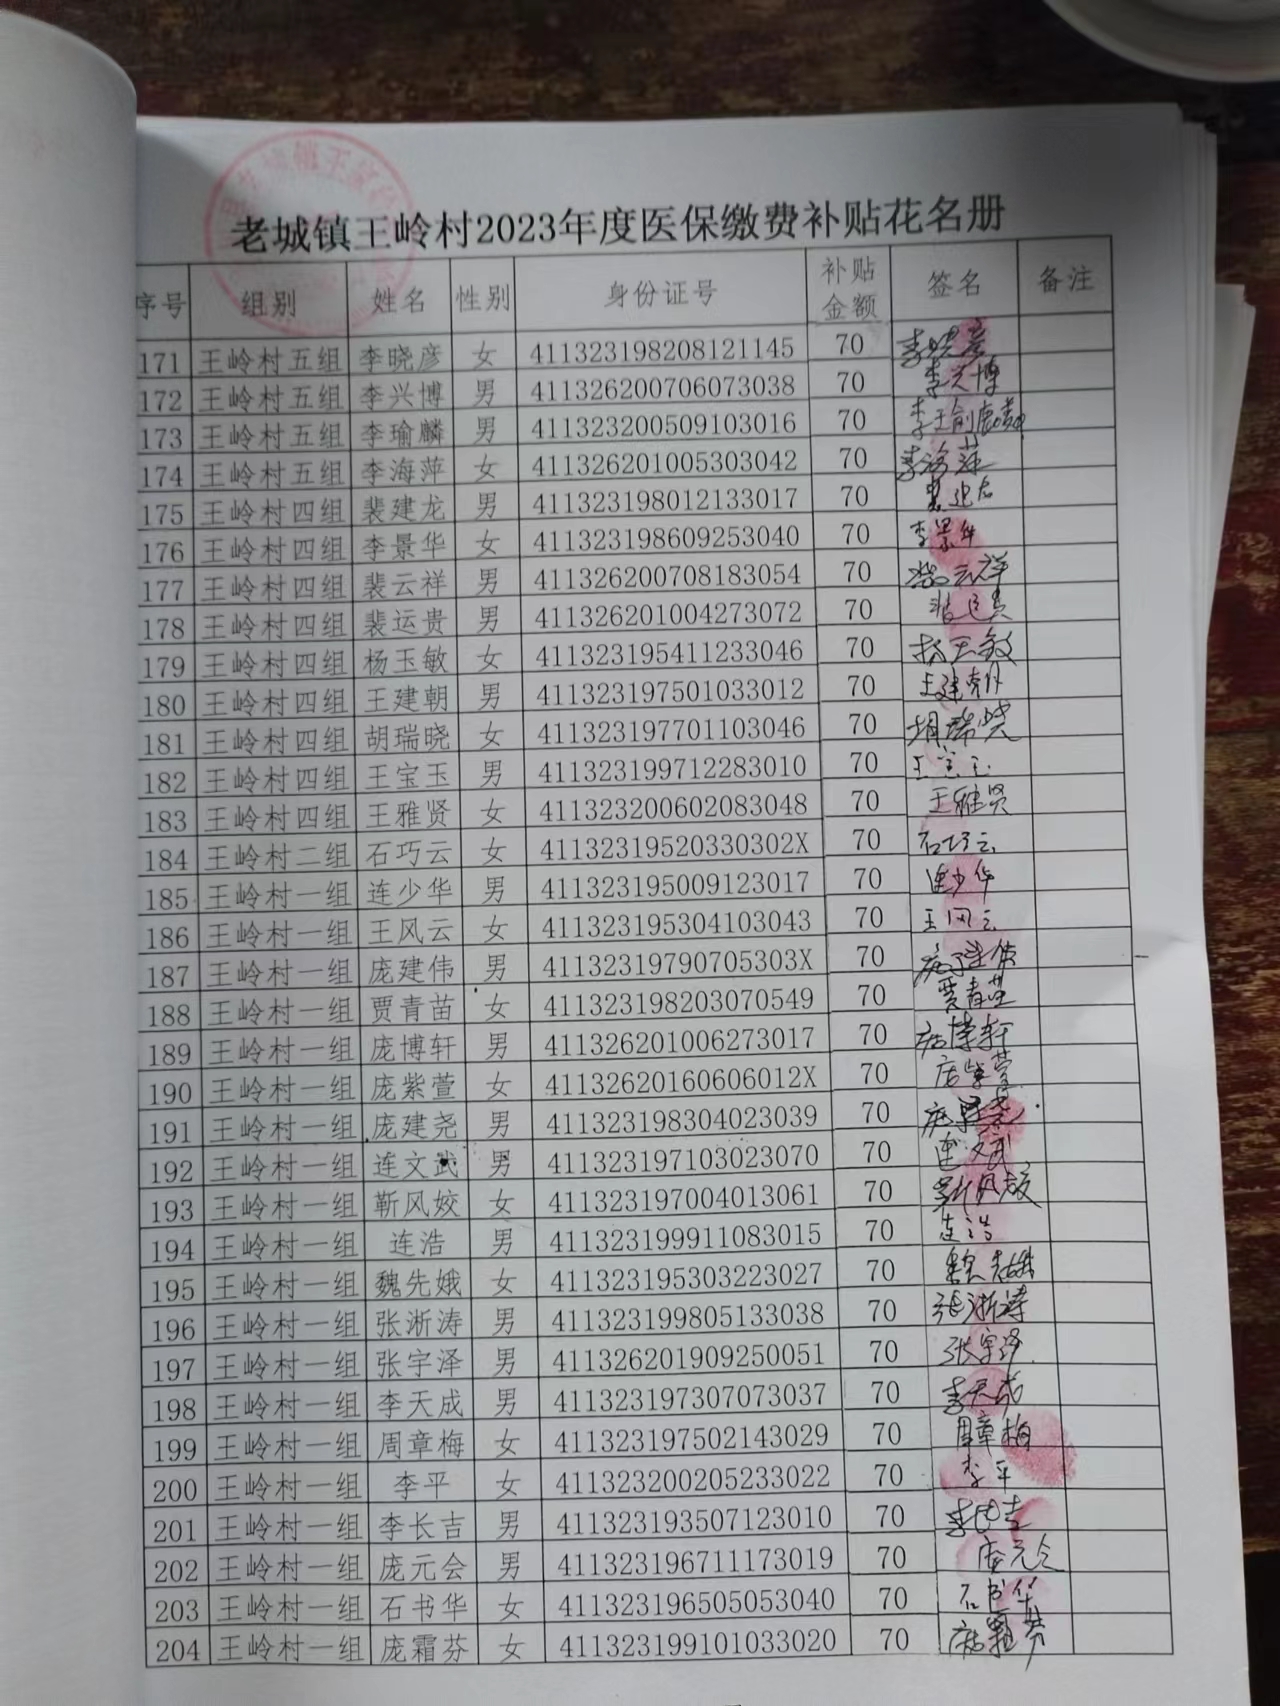 老城镇王岭村2023年度医保缴费补贴花名册
序号 组别 姓名 性别 身份证号 补贴金额 签名 备注
171 王岭村五组 李晓彦 女 411323198208121145 70 李晓彦
172 王岭村五组 李兴博 男 411326200706073038 70 李兴博
173 王岭村五组 李瑜麟 男 411323200509103016 70
174 王岭村五组 李海萍 女 411326201005303042 70 李海萍
175 王岭村四组 裴建龙 男 411323198012133017 70
176 王岭村四组 李景华 女 411323198609253040 70 李景华
177 王岭村四组 裴云祥 男 411326200708183054 70 裴云祥
178 王岭村四组 裴运贵 男 411326201004273072 70 裴运贵
179 王岭村四组 杨玉敏 女 411323195411233046 70 杨玉敏
180 王岭村四组 王建朝 男 411323197501033012 70 王建朝
181 王岭村四组 胡瑞晓 女 411323197701103046 70 胡瑞晓
182 王岭村四组 王宝玉 男 411323199712283010 70 王宝玉
183 王岭村四组 王雅贤 女 411323200602083048 70 王雅贤
184 王岭村二组 石巧云 女 41132319520330302X 70 石巧云
185 王岭村一组 连少华 男 411323195009123017 70 连少华
186 王岭村一组 王风云 女 411323195304103043 70 王风云
187 王岭村一组 庞建伟 男 41132319790705303X 70 庞建伟
188 王岭村一组 贾青苗 女 411323198203070549 70 贾青苗
189 王岭村一组 庞博轩 男 411326201006273017 70 庞博轩
190 王岭村一组 庞紫萱 女 41132620160606012X 70 庞紫萱
191 王岭村一组 庞建尧 男 411323198304023039 70 庞建尧
192 王岭村一组 连文武 男 411323197103023070 70 连文武
193 王岭村一组 靳风姣 女 411323197004013061 70 靳风姣
194 王岭村一组 连浩 男 411323199911083015 70 连浩
195 王岭村一组 魏先娥 女 411323195303223027 70 魏先娥
196 王岭村一组 张淅涛 男 411323199805133038 70 张淅涛
197 王岭村一组 张宇泽 男 411326201909250051 70 张宇泽
198 王岭村一组 李天成 男 411323197307073037 70 李天成
199 王岭村一组 周章梅 女 411323197502143029 70 周章梅
200 王岭村一组 李平 女 411323200205233022 70 李平
201 王岭村一组 李长吉 男 411323193507123010 70 李长吉
202 王岭村一组 庞元会 男 411323196711173019 70 庞元会
203 王岭村一组 石书华 女 411323196505053040 70 石书华
204 王岭村一组 庞霜芬 女 411323199101033020 70 庞霜芬